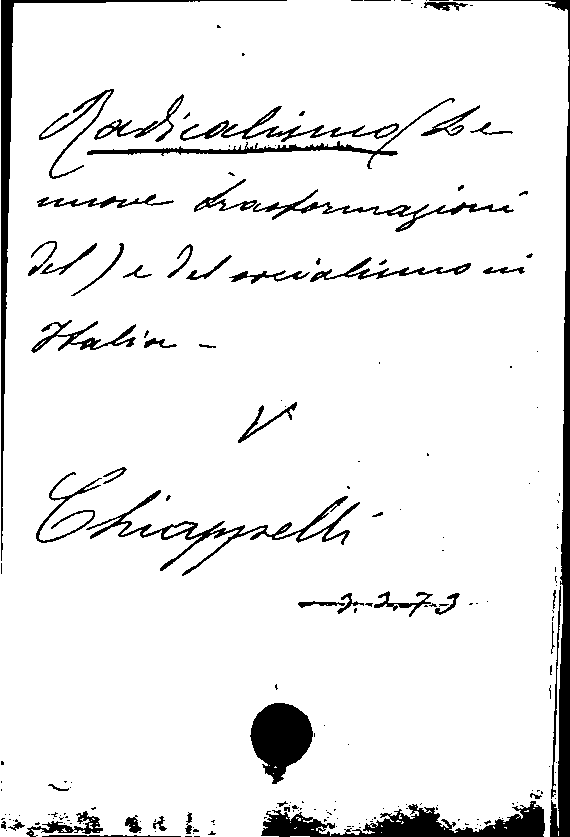 Radicalismo (Le
nuove trasformazioni
del) e del socialismo in
Italia -
V
Chiappelli
3.3.73